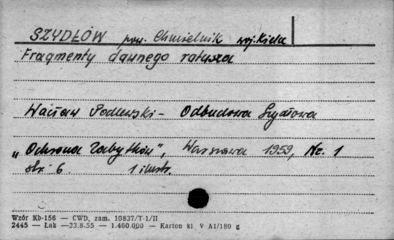 SZYDŁÓW pow. Chmielnik woj. Kielce
Fragmenty dawnego ratusza
Wacław Podlewski - Odbudowa Szydłowa
„Ochrona Zabytków", Warszawa 1959, Nr. 1
str. 6. 1 ilustr.
Wzór Kb-156 — CWD, zam. 10837/T-1/II
2445 — Łsk —23.8.55 — 1.460.000 — Karton kl V A1/180 g